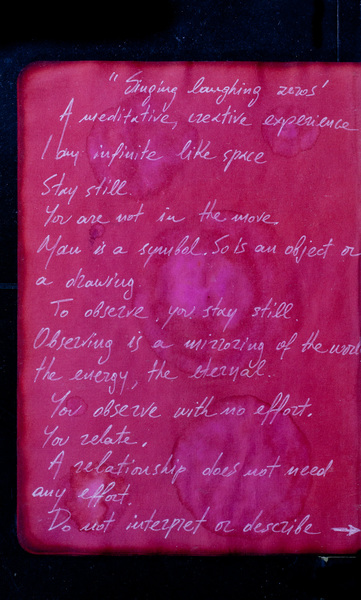 "Singing laughing zeros'
A meditative, creative experience
I am infinite like space
Stay still.
You are not in the move.
Man is a symbol. So is an object or
a drawing.
To observe, you stay still.
Observing is a mirroring of the
the energy, the eternal..
You observe with no effort.
You relate.
A relationship does not need
any effort.
Do not interpret or describe →